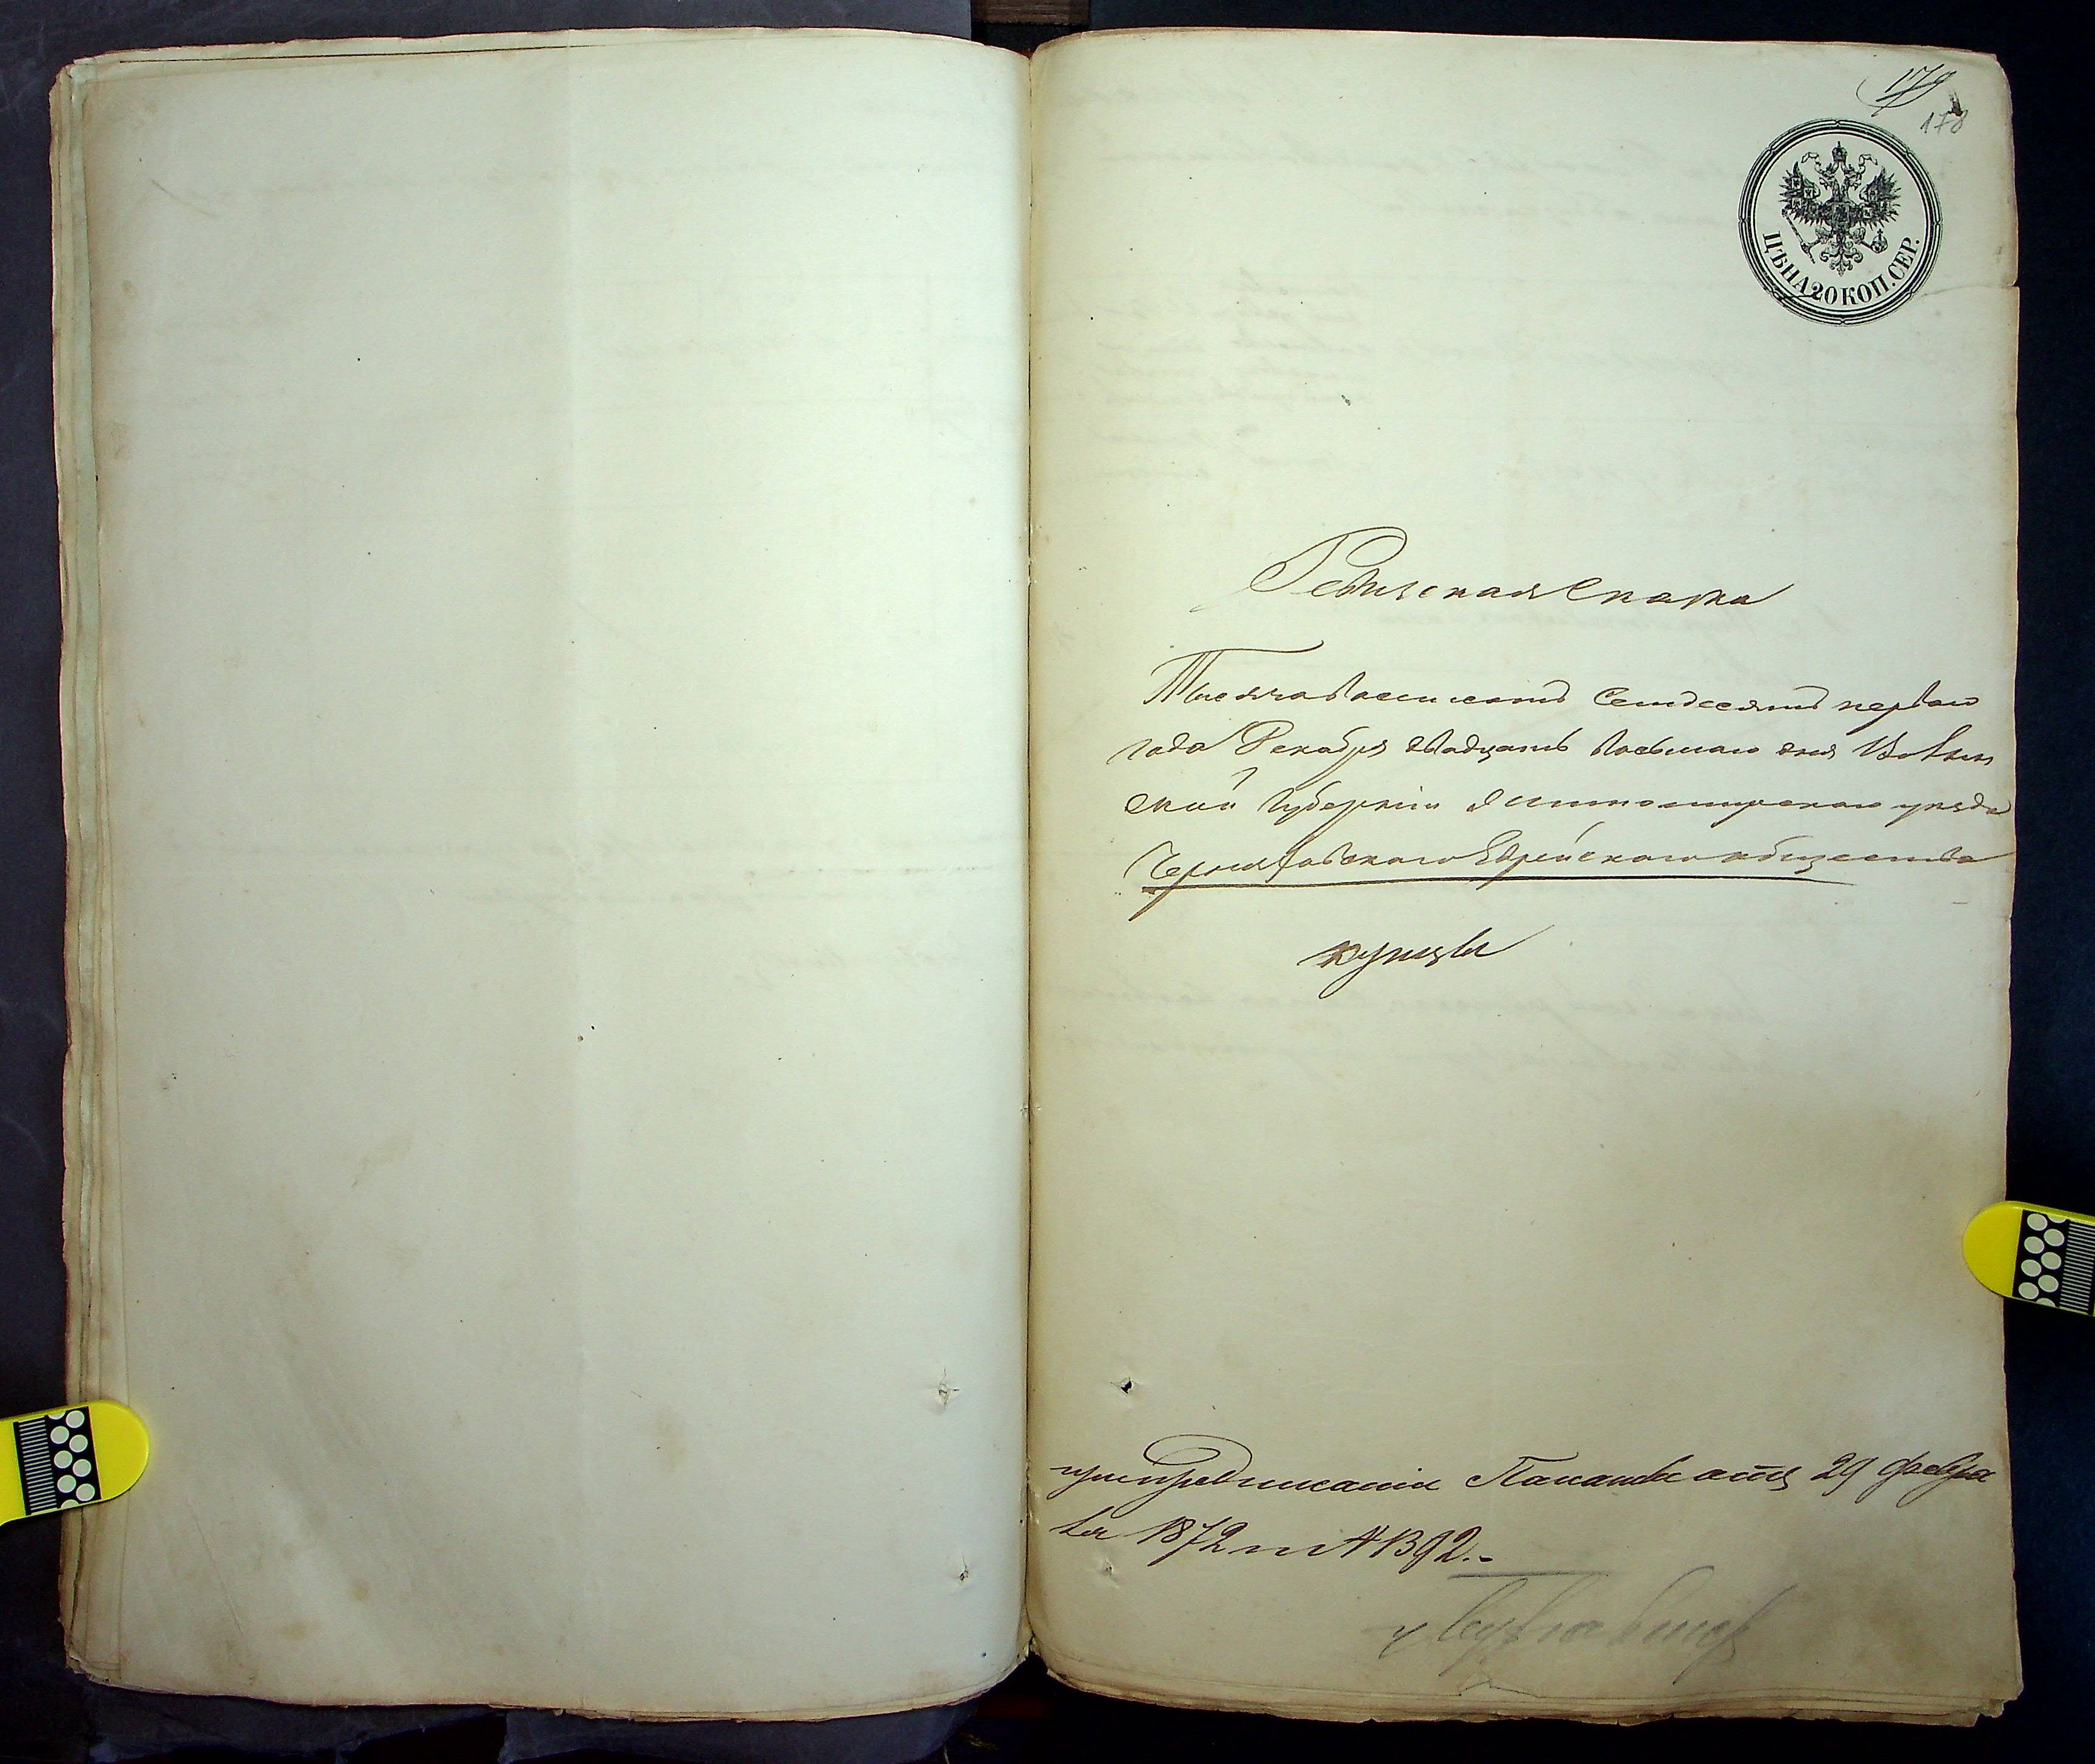 179
178
ЦѢНА 20 КОП. СЕР.
Ревизская Сказка
Тысяча восемсотъ Семдесятъ первого
года Декабря двадцать восьмаго дня Волын
ской Губерніи Житомирскаго уѣзда
Черняховскаго Еврейскаго общества
купцы
при предписаніи Палаты отъ 29 февра
ля 1872 г № 1392.